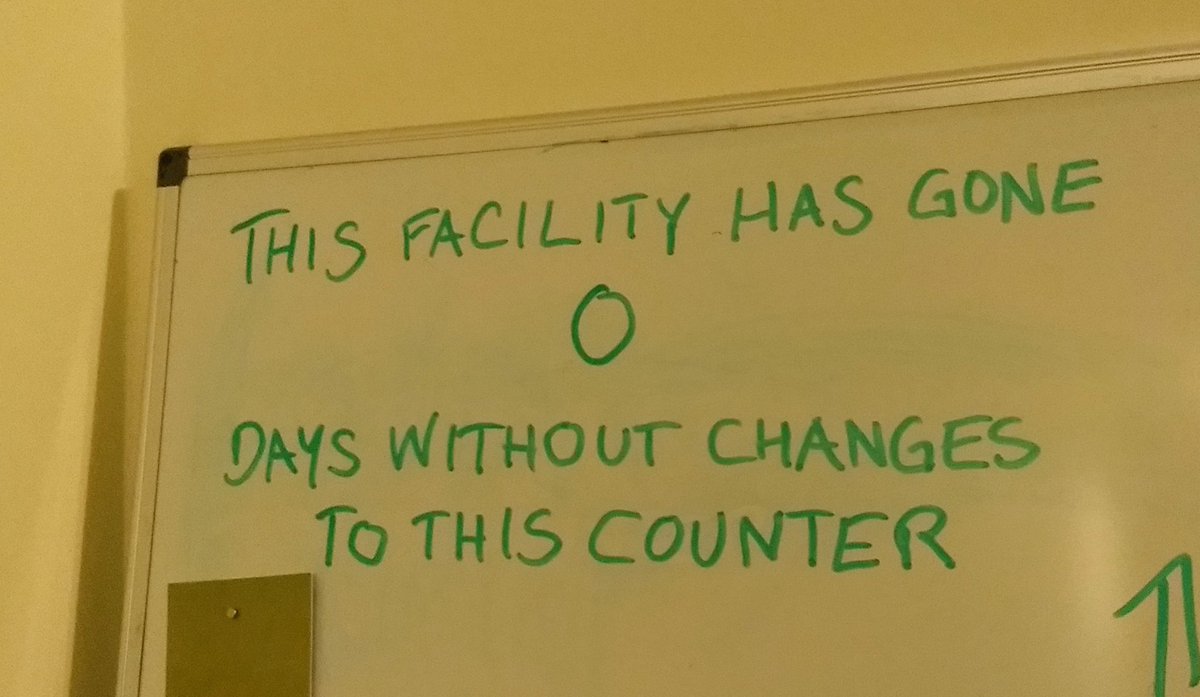 THIS FACILITY HAS GONE
0
DAYS WITHOUT CHANGES
TO THIS COUNTER